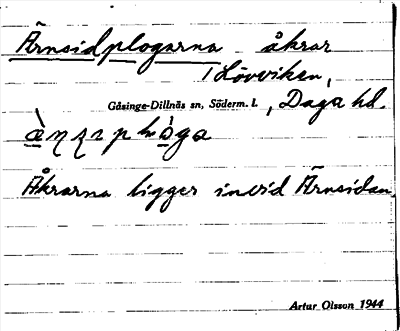 Ärnsidplogarna åkrar
i Lövviken,
Gåsinge-Dillnäs sn, Söderm. l., Daga hd.
Åkrarna ligger invid Ärnsidan.
Artur Olsson 1944